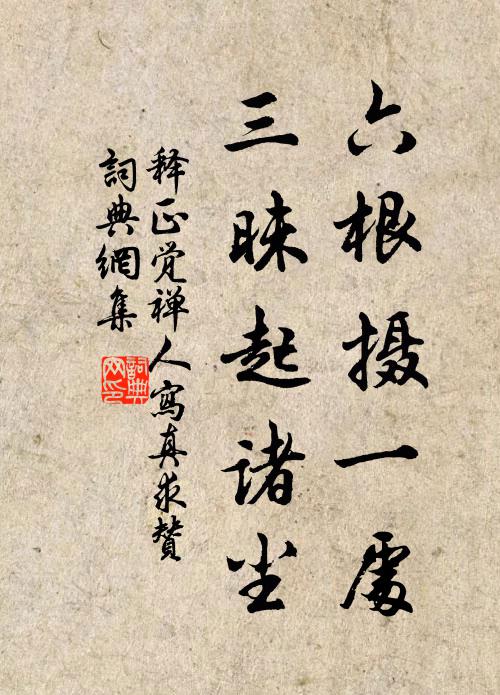 六根摄一處
三昧起诸尘
释正觉禅人寫真求贊
詞典網集
詞典網印